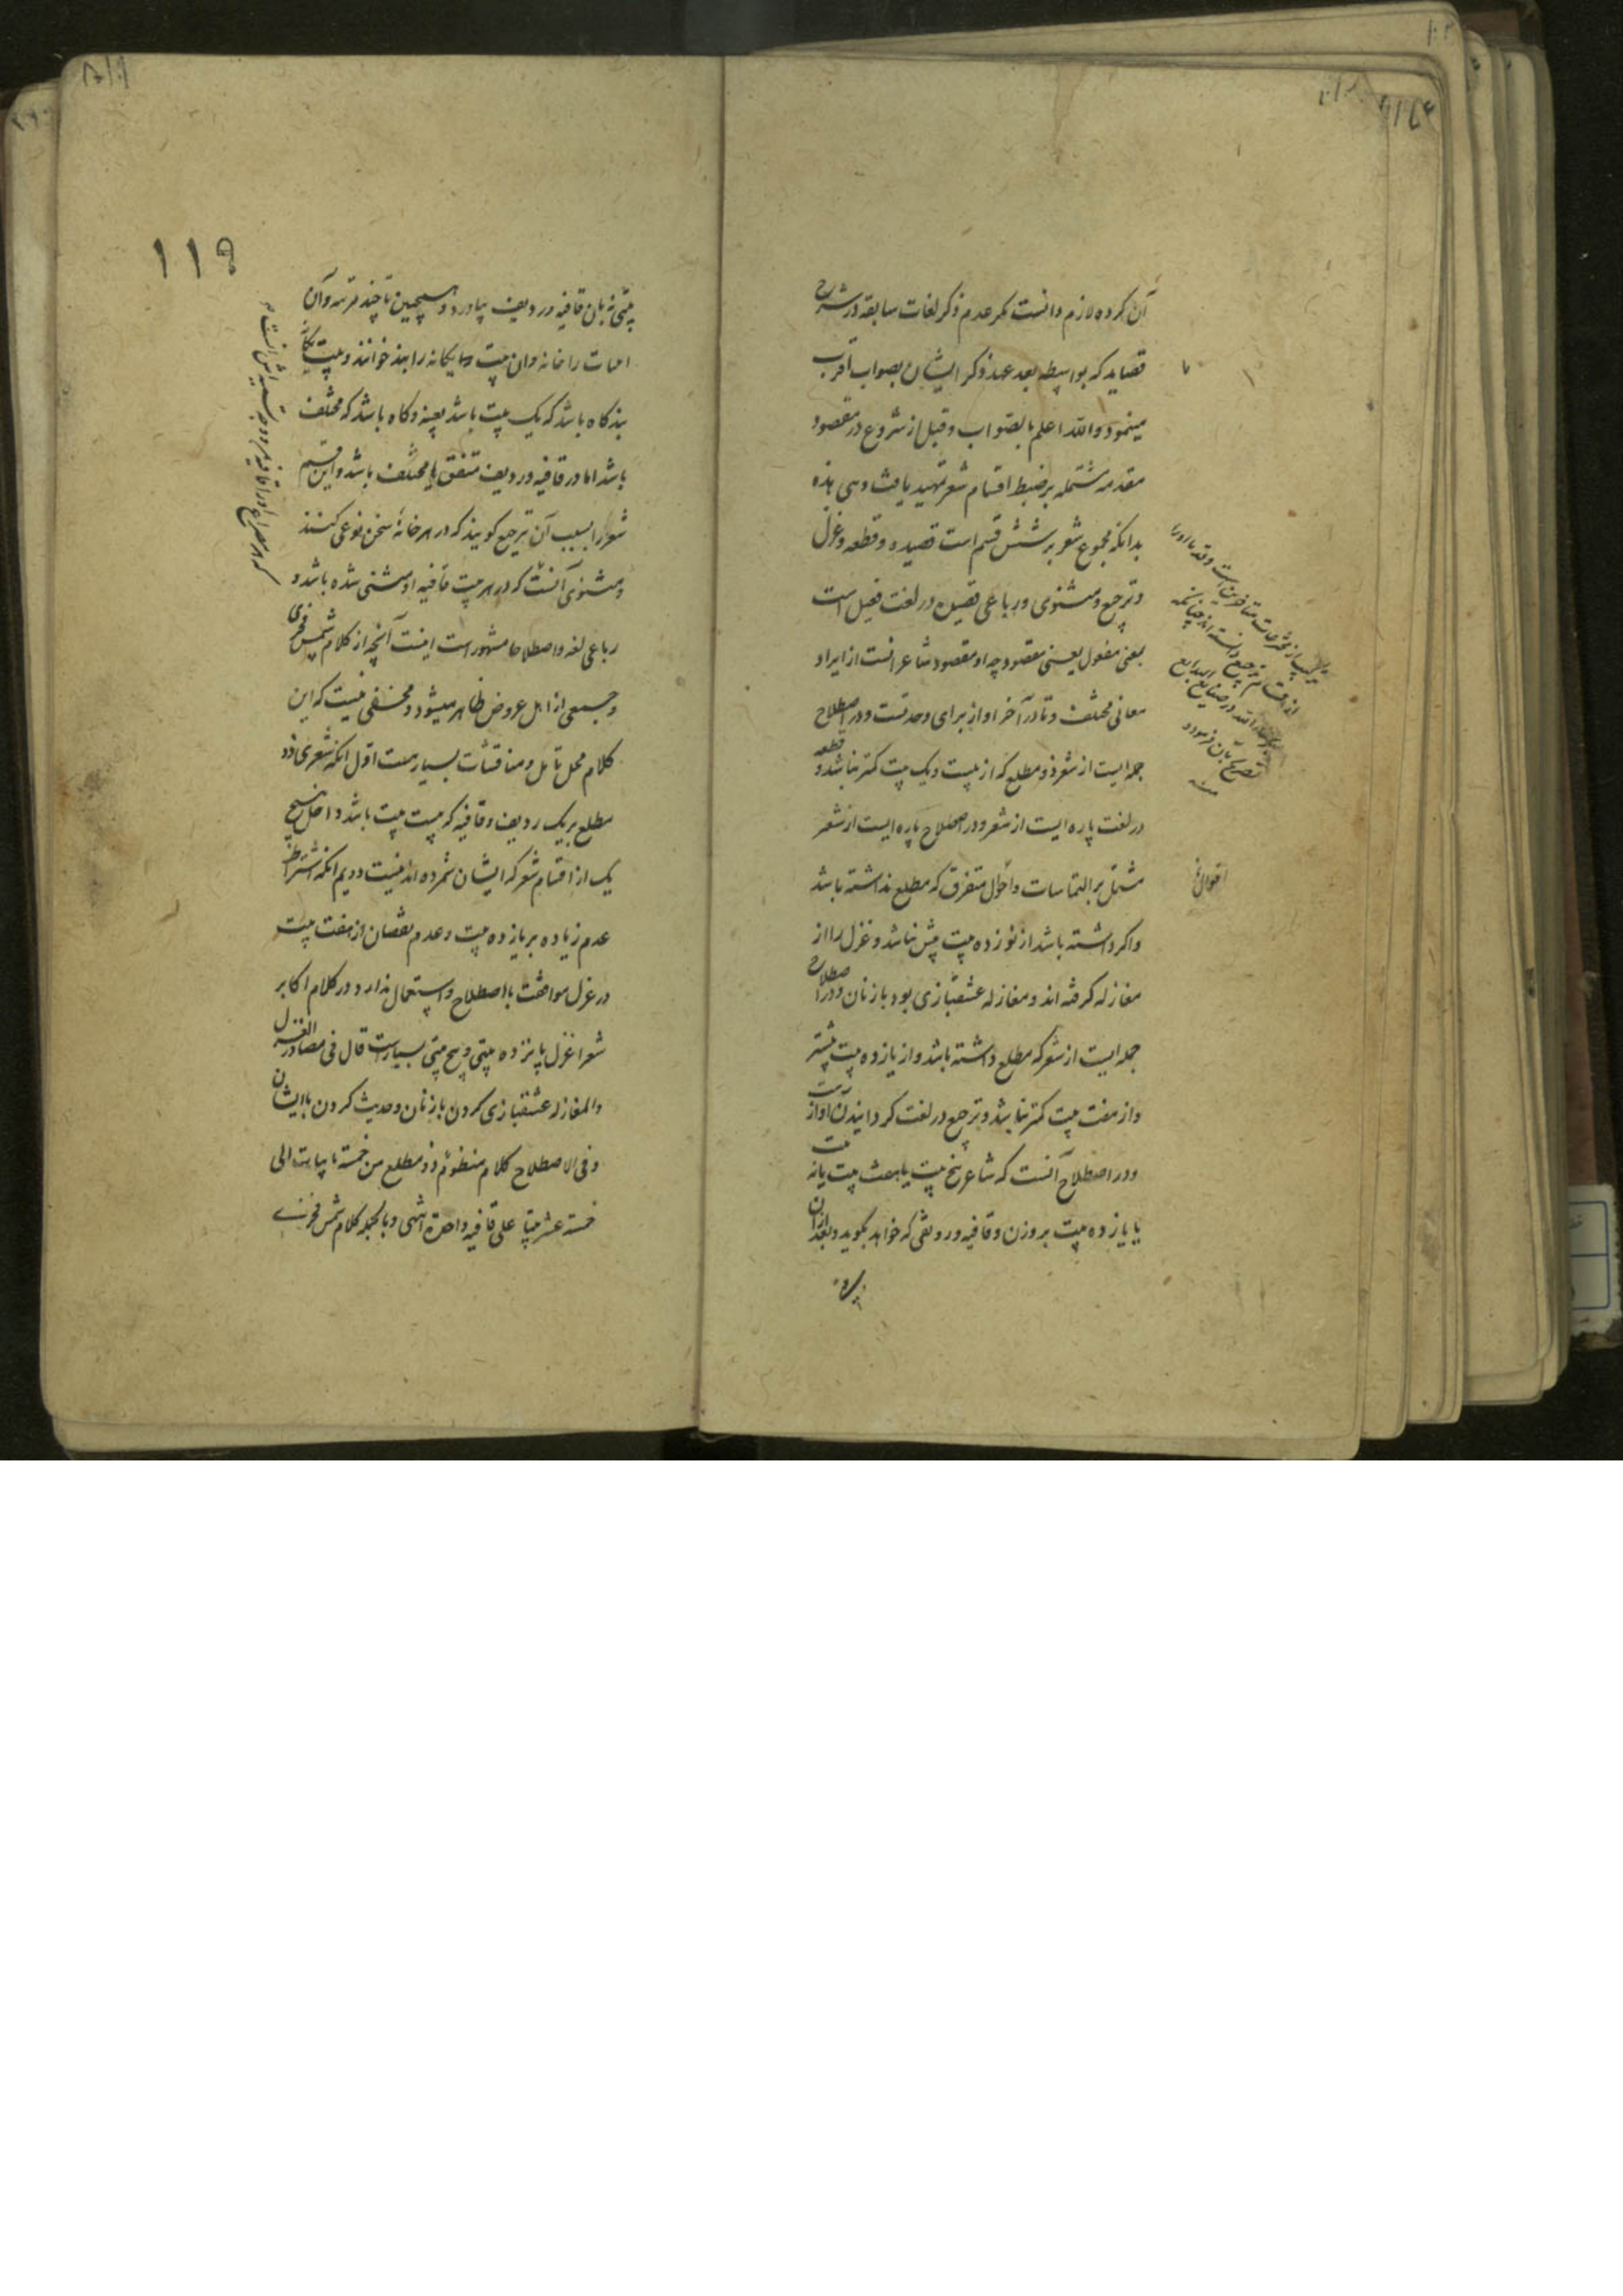 آن کرده لازم دانست مکر عدم ذکر لغات سابقه در شرح
قصاید که بواسطه بعد عهد ذکر ایشان بصواب اقرب
مینمود والله اعلم بالصواب و قبل از شروع در مقصود
مقدمه مشتمله بر ضبط اقسام شعر تمهید یافت وهی هذه
بدانکه مجموع شعر بر شش قسم است قصیده و قطعه و غزل
و ترجیع و مثنوی و رباعی قصیده در لغت فعیل است
بمعنی مفعول یعنی مقصود چه او مقصود شاعرانست از ایراد
معانی مختلف و تا در آخر او از برای وحدتست و در اصطلاح
جمله ایست از شعر ذو مطلع که از بیست و یک بیت کمتر نباشد و قطعه
در لغت پاره ایست از شعر و در اصطلاح پاره ایست از شعر
مشتمل بر التماسات و احوال متفرق که مطلع نداشته باشد
و اکر داشته باشد از نوزده بیت بیش نباشد و غزل را از
مغازله کرفته اند و مغازله عشقبازی بود با زنان و در اصطلاح
جمله ایست از شعر که مطلع داشته باشد و از یازده بیت بیشتر
و از هفت بیت کمتر نباشد و ترجیع در لغت کردانیدن آواز
و در اصطلاح آنست که شاعر پنج بیت یا هفت بیت یا نه
یا یازده بیت بر وزن و قافیه و ردیفی که خواهد بکوید و بعد از آن
اقوال
۱۱۹
بیتی نه بان قافیه و ردیف بیاورد و همچنین تا چند مرتبه و آن
ابیات را خانه و ان بیت یکانه را بند خوانند و بیت یکانه
بند کاه باشد که یک بیت باشد بعینه و کاه باشد که مختلف
باشد اما در قافیه و ردیف متفق یا مختلف باشد و این قسم
شعر را بسبب آن ترجیع کویند که در هر خانه سخن نوعی کنند
و مثنوی آنست که در هر بیت قافیه او مثنی شده باشد و
رباعی لغه و اصطلاحا مشهور است اینست آنچه از کلام شمس فخری
و جمعی از اهل عروض ظاهر میشود و مخفی نیست که این
کلام محل تامل و مناقشات بسیارست اول انکه شعری ذو
مطلع بر یک ردیف و قافیه که بیست بیت باشد داخل هیچ
یک از اقسام شعر که ایشان شمرده اند نیست دویم انکه اشتراط
عدم زیاده بر یازده بیت و عدم نقصان از هفت بیت
در غزل موافقت با اصطلاح و استعمال ندارد و در کلام اکابر
شعرا غزل پانزده بیتی و پنج بیتی بسیارست قال فی مصادر الغزل
والمغازله عشقبازی کردن با زنان و حدیث کردن با ایشان
و فی الاصطلاح کلام منظوم ذو مطلع من خمسة ابیات الی
خمسة عشر بیتا علی قافیه واحدة انتهی و بالجمله کلام شمس فخری